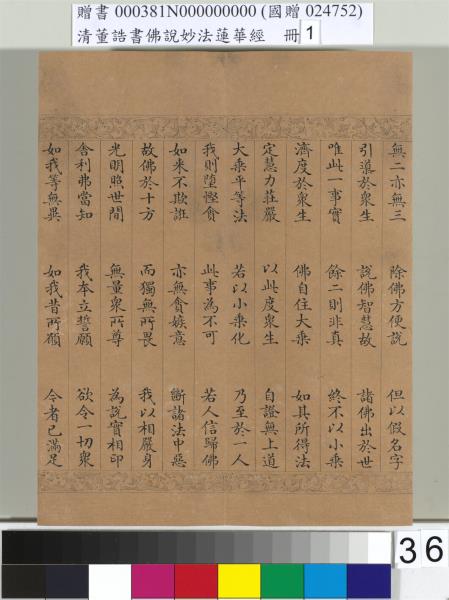 贈書 000381N000000000 (國贈 024752)
清董誥書佛說妙法蓮華經 冊 1
無二亦無三 除佛方便說 但以假名字
引導於眾生 說佛智慧故 諸佛出於世
唯此一事實 餘二則非真 終不以小乘
濟度於眾生 佛自住大乘 如其所得法
定慧力莊嚴 以此度眾生 自證無上道
大乘平等法 若以小乘化 乃至於一人
我則墮慳貪 此事為不可 若人信歸佛
如來不欺誑 亦無貪嫉意 斷諸法中惡
故佛於十方 而獨無所畏 我以相嚴身
光明照世間 無量眾所尊 為說實相印
舍利弗當知 我本立誓願 欲令一切眾
如我等無異 如我昔所願 今者已滿足
36